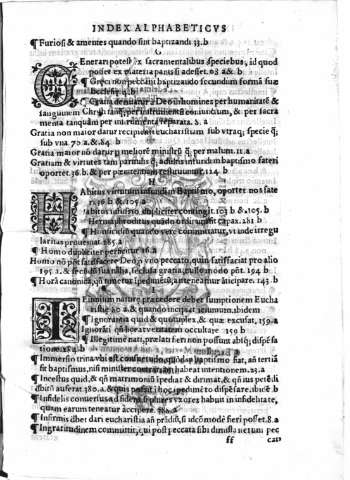 INDEX ALPHABETICVS
¶ Furiosi & amentes quando sint baptizandi 53. b
G
Enerari potest ex sacramentalibus species, id quod
posset ex materia panis si adesset. 63 a & b.
¶ Græci non peccant baptizando secundum formã suæ
¶ Gratia denatur a Deo in homines per humanitatẽ &
sanguinem Christi tanq̃ per instrumentũ coniunctum, & per sacra
menta tanquàm per instrumenta separata. 2. a
Gratia non maior datur recipienti eucharistium sub vtraq; specie q̃;
sub vna 70 a. & 84. b
Gratia maior nõ datur p meliorẽ ministrũ q̃. per malum. 11. a
Gratiam & virtutes tam paruulis q̃. adultis infundi in baptismo fateri
oportet 36. b. & per pœnitentiam restituuntur. 114. b
H
Abitus virtutum infundi in Baptismo, oportet nos fate
ri 36 b & 105. a
Habitus infusio dupliciter contingit. 103 b & .105. b
¶ Hermaphroditus quando ordinum sit capax. 281 b
¶ Homicidiũ quando vere committatur, vt inde irregu
laritas proueniat. 285. a
¶ Homo dupliciter perficitur 36. a
Homo nõ põt satisfacere Deo pro vno peccato, quin satisfaciat pro alio
195 a. & secundũ sua nãlia, seclusa gratia, nullo modo põt. 194 b
¶ Hora canonica, q̃n
incipere. 143. b
I
Eiunium naturæ præcedere debet sumptionem Eucha
ristiæ 80 a. & quando incipiat ieiunium, ibidem
¶ Ignorantia quid & quotuplex, & quæ excuset. 159. a
¶ Ignorãti q̃n
occultare 159 b
¶ Illegitime nati, prælati fieri non possunt absq; dispẽsa
tione. 284. b
¶ Immersio trina vbi est consuetudo, quod in baptismo fiat, an tertiã
sit baptismus, nisi minister contrariam habeat intentionem. 25. a
¶ Incestus quid, & q̃n matrimoniũ ĩpediat & dirimat, & q̃n ius petẽdi
debitũ auferat 380. a. & quis possit ĩ hoc ĩpedimẽto dispẽsare. ibidẽ b
¶ Infidelis conuersus ad fidẽ, si plures vxores habuit in infidelitate,
quam earum teneatur accipere.
¶ Infirmis debet dari eucharistia
fieri posset. 82. a
¶ Ingratitudinem committit, qui post peccata sibi dimissa iterum pec
ff
cau